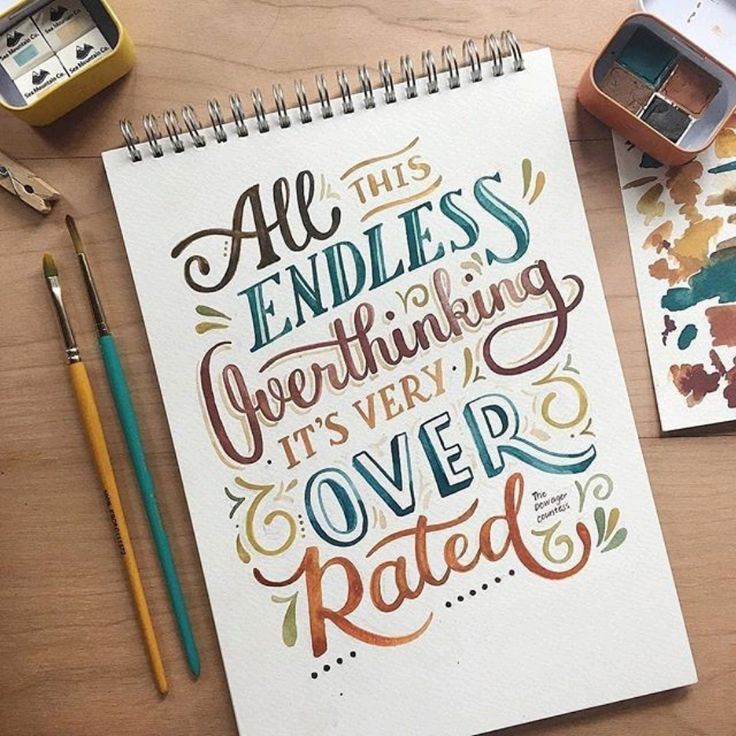 Sea Mountain Co.
Sea Mountain Co.
Sea Mountain Co.
All THIS
ENDLESS
Overthinking
IT'S VERY
OVER
Rated
The
Dowager
Countess